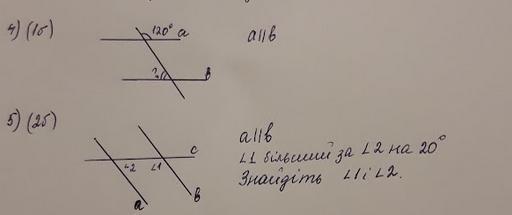 4) (1б)
120° a
a||b
?
b
5) (2б)
c
∠2 ∠1
a
b
a||b
∠1 більший за ∠2 на 20°
Знайдіть ∠1 і ∠2.